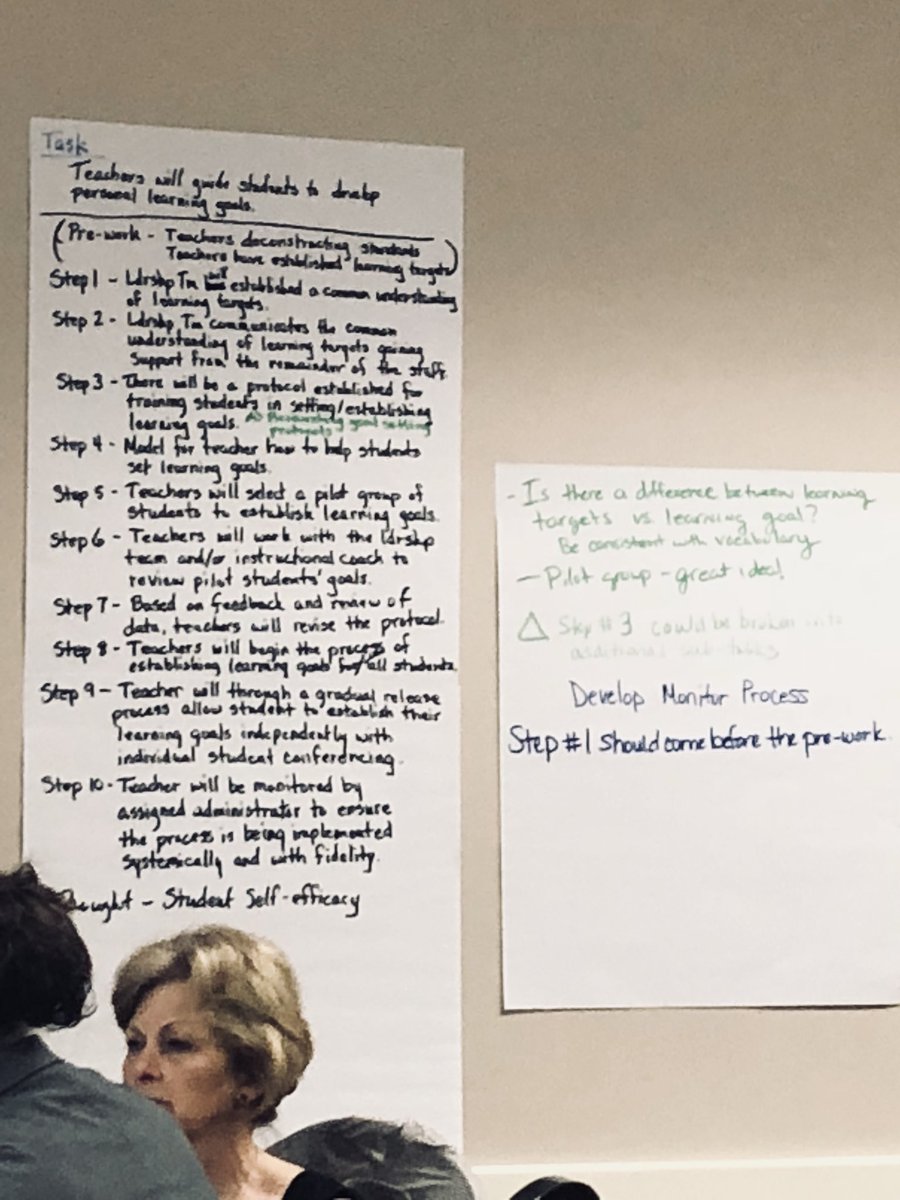 Task
Teachers will guide students to develop
personal learning goals.
(Pre-work - Teachers deconstructing standards
Teachers have established learning targets)
Step 1 - Ldrshp Tm will established a common understanding
of learning targets.
Step 2 - Ldrshp Tm communicates the common
understanding of learning targets gaining
support from the remainder of the staff.
Step 3 - There will be a protocol established for
training students in setting/establishing
learning goals. Researching goal setting
protocols
Step 4 - Model for teacher how to help students
set learning goals.
Step 5 - Teachers will select a pilot group of
students to establish learning goals.
Step 6 - Teachers will work with the ldrshp
team and/or instructional coach to
review pilot students' goals.
Step 7 - Based on feedback and review of
data, teachers will revise the protocol.
Step 8 - Teachers will begin the process of
establishing learning goals for all students.
Step 9 - Teacher will through a gradual release
process allow student to establish their
learning goals independently with
individual student conferencing.
Step 10 - Teacher will be monitored by
assigned administrator to ensure
the process is being implemented
systemically and with fidelity.
- Student Self-efficacy
- Is there a difference between learning
targets vs. learning goal?
Be consistent with vocabulary
- Pilot group - great idea!
△ Step #3 could be broken into
additional sub-tasks
Develop Monitor Process
Step #1 should come before the pre-work.